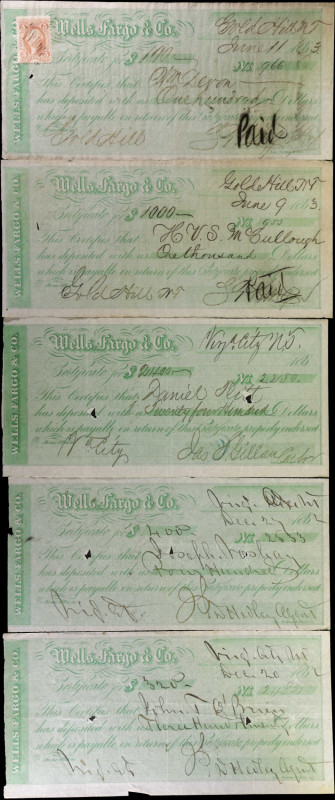 WELLS FARGO & CO.
Gold Hill NT
Wells, Fargo & Co.
June 11 1863
Certificate for $ 100 — No. 966
This Certifies that Wm Devon
has deposited with us One hundred Dollars
which is payable on return of this Certificate properly endorsed
Gold Hill
Paid
WELLS FARGO & CO.
Gold Hill NT
Wells, Fargo & Co.
June 9 1863
Certificate for $ 1000 — No.
This Certifies that H. V. S. McCullough
has deposited with us One thousand Dollars
which is payable on return of this Certificate properly endorsed
Gold Hill NT
Paid
WELLS FARGO & CO.
Virga. City N.T.
Wells, Fargo & Co.
Certificate for $ 2400 — No.
This Certifies that Daniel
has deposited with us Twenty four Hundred Dollars
which is payable on return of this Certificate properly endorsed
Va City
WELLS FARGO & CO.
Wells, Fargo & Co.
Dec 27 1862
Certificate for $ 400 — No.
This Certifies that Joseph
has deposited with us Four Hundred Dollars
which is payable on return of this Certificate properly endorsed
Agent
WELLS FARGO & CO.
Virg. City NT
Wells, Fargo & Co.
Dec 20 1862
Certificate for $ 320 — No.
This Certifies that John T.
has deposited with us Three Hund Twenty Dollars
which is payable on return of this Certificate properly endorsed
Agent